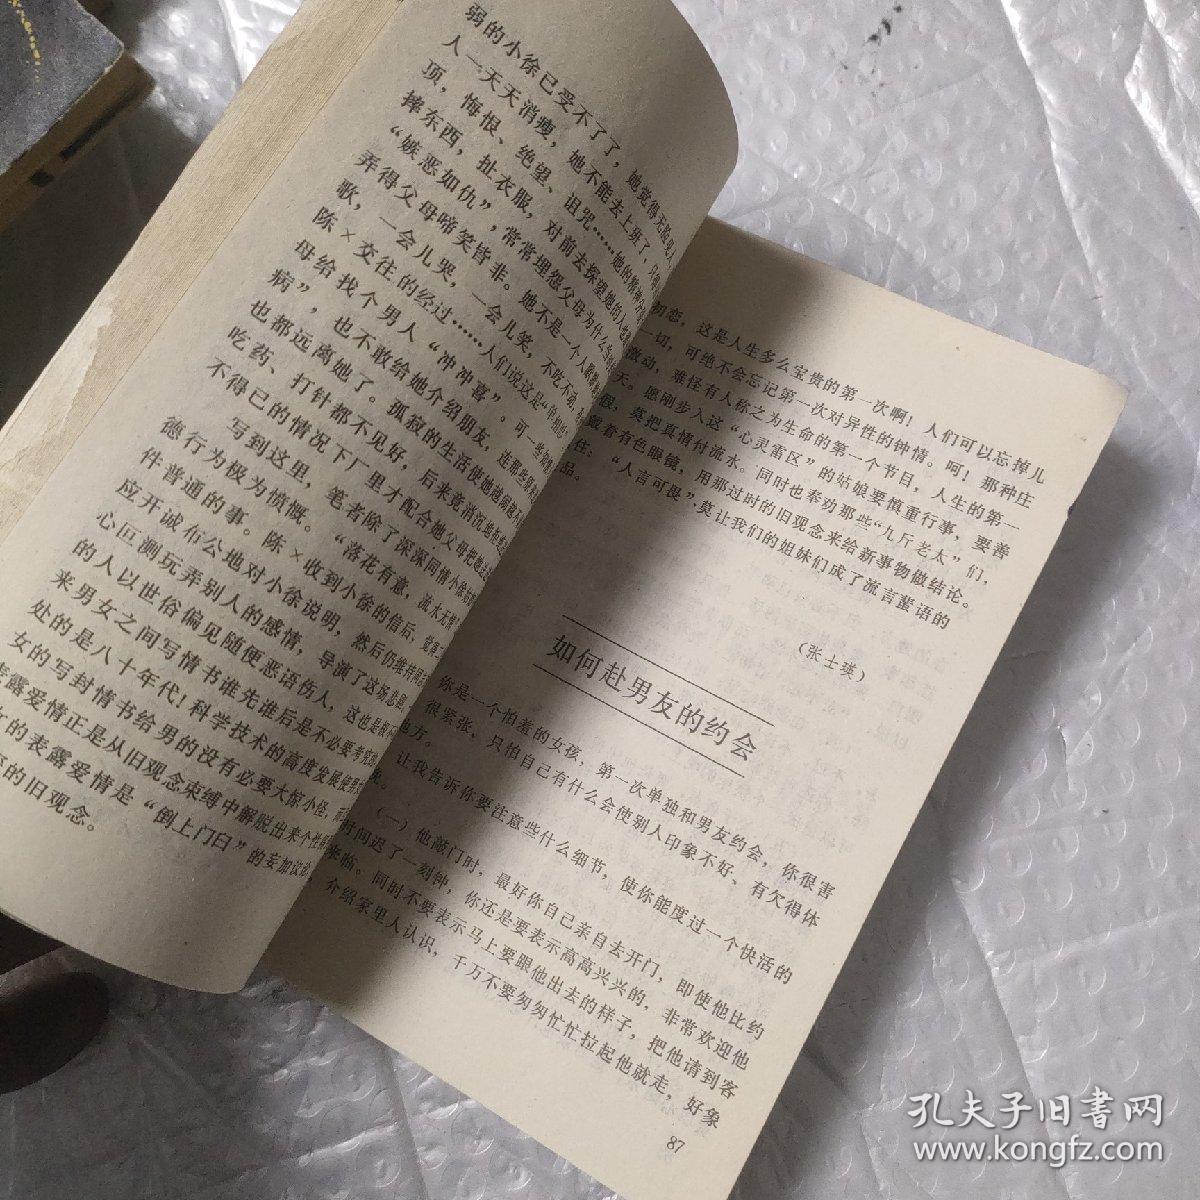 弱的小徐已受不了了，她觉得无脸见人
人一天天消瘦，她不能去上班了，只
顶，悔恨、绝望、诅咒……她的精神
摔东西，扯衣服，对前去探望她的人
“嫉恶如仇”，常常埋怨父母为什么
弄得父母啼笑皆非。她不是一个人
歌，一会儿哭，一会儿笑，不吃不
陈×交往的经过……人们说这是“单相思
母给找个男人“冲冲喜”。可一些
病”，也不敢给她介绍朋友，连那些
也都远离她了。孤寂的生活使她
吃药、打针都不见好，后来竟消沉
不得已的情况下厂里才配合她父母把她
写到这里，笔者除了深深同情小徐
德行为极为愤慨。“落花有意，流水无情
件普通的事。陈×收到小徐的信后，
应开诚布公地对小徐说明，然后仍维持同
心叵测玩弄别人的感情，导演了这场悲剧
的人以世俗偏见随便恶语伤人，这也是
来男女之间写情书谁先谁后是不必要考究
处的是八十年代！科学技术的高度发展使
女的写封情书给男的没有必要大惊小怪，
表露爱情正是从旧观念束缚中解脱出来
的表露爱情是“倒上门臼”的妄加议论
的旧观念。
初恋，这是人生多么宝贵的第一次啊！人们可以忘掉儿
一切，可绝不会忘记第一次对异性的钟情。呵！那种庄
激动，难怪有人称之为生命的第一个节目，人生的第一
天。愿刚步入这“心灵雷区”的姑娘要慎重行事，要善
假，莫把真情付流水。同时也奉劝那些“九斤老太”们，
戴着有色眼镜，用那过时的旧观念来给新事物做结论。
任：“人言可畏”，莫让我们的姐妹们成了流言蜚语的
品。
（张士瑛）
如何赴男友的约会
你是一个怕羞的女孩，第一次单独和男友约会，你很害
很紧张，只怕自己有什么会使别人印象不好、有欠得体
地方。
让我告诉你要注意些什么细节，使你能度过一个快活的
（一）他敲门时，最好你自己亲自去开门，即使他比约
时间迟了一刻钟，你还是要表示高高兴兴的，非常欢迎他
来临。同时不要表示马上要跟他出去的样子，把他请到客
介绍家里人认识，千万不要匆匆忙忙拉起他就走，好象
87
孔夫子旧书网
www.kongfz.com